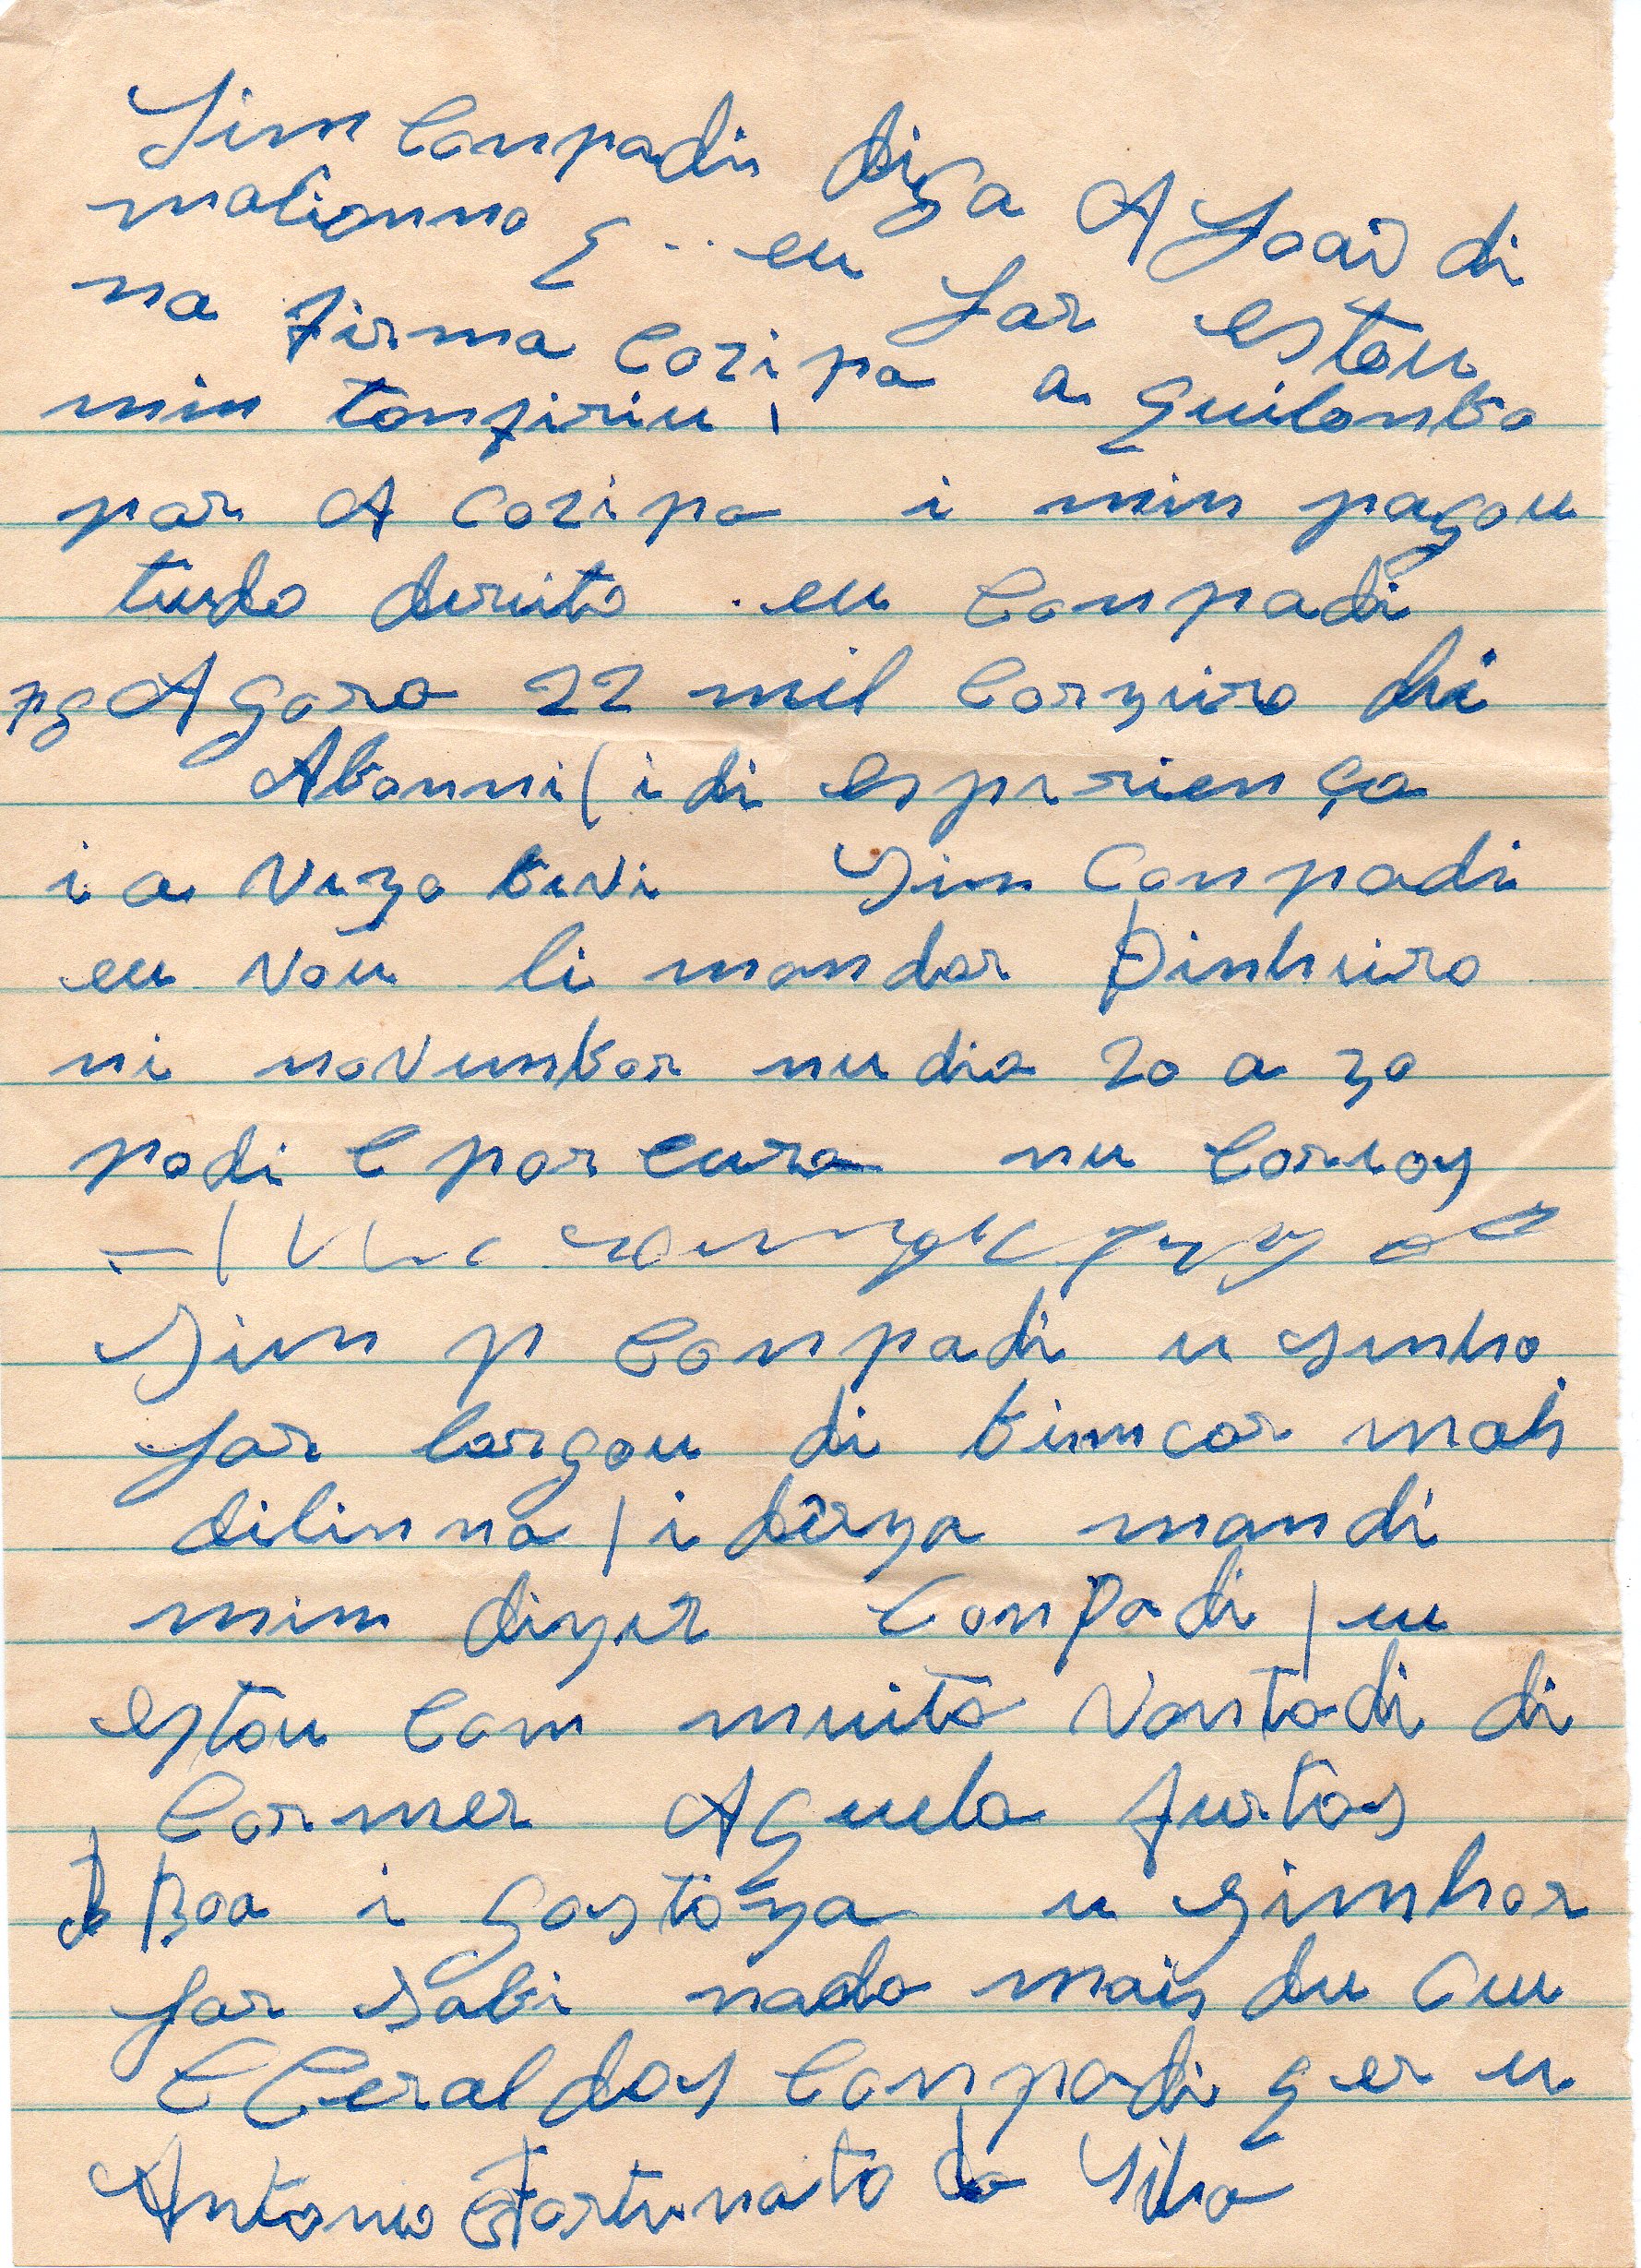 Sim Conpadi diga A Joaõ di
maliomno q. eu Jar estou
na firma Cozipa a quilonbo
min tonfiriu,
par A Cozipa i min pagou
tudo diruito . eu Conpadi
A garo 22 mil Corzuiro di
Abonni ( i di espiriença
i a Viza tivi Sim Conpadi
eu Vou li mandar Dinhuiro
ni novumbor nu dia 20 a 30
podi C por cura nu Coruoy
Sim p Conpadi u sinho
Jar largou di binncar mah
dilinna / i dirza mandi
mim dizer ConPadi / eu
estou Com muito Vontadi di
Cormer Aquela furtas
Boa i gostoza u Sinhor
Jar Sabi nada mais du Cuu
CCeraldoy Conpadi q er u
Antonio Fortunato da Silva